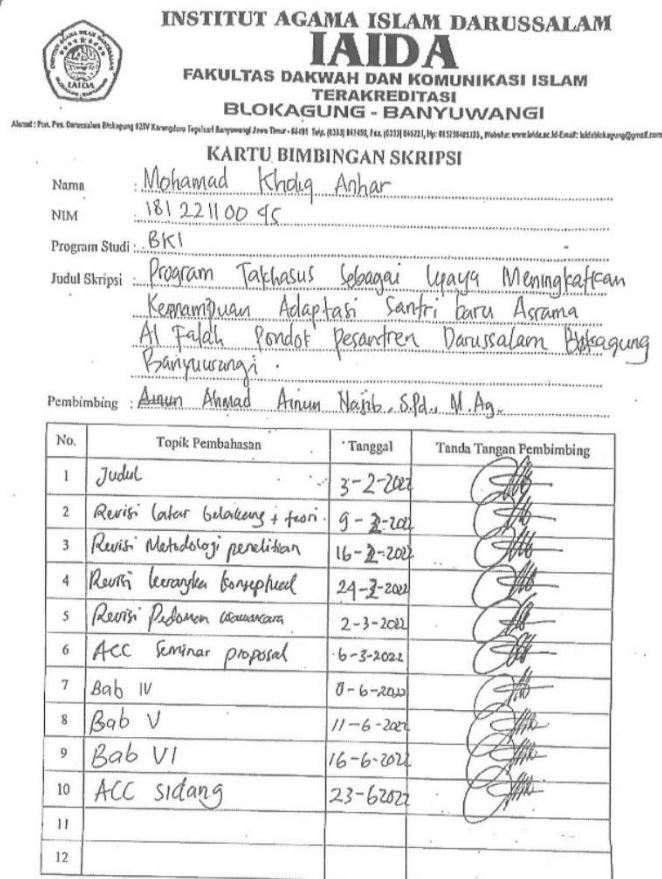 INSTITUT AGAMA ISLAM DARUSSALAM
IAIDA
FAKULTAS DAKWAH DAN KOMUNIKASI ISLAM
TERAKREDITASI
BLOKAGUNG - BANYUWANGI
Alamat : Pon. Pes. Darussalam Blokagung 02/IV Karangdoro Tegalsari Banyuwangi Jawa Timur - 68491 Telp. (0333) 847459, Fax. (0333) 846221, Hp: Website: www.iaida.ac.id-Email: iaidablokagung@gmail.com
KARTU BIMBINGAN SKRIPSI
Nama : Mohamad Kholiq Anhar
NIM : 181 221100 45
Program Studi : BKI
Judul Skripsi : Program Takhasus Sebagai Upaya Meningkatkan
Kemampuan Adaptasi Santri baru Asrama
Al Falah Pondok pesantren Darussalam Blokagung
Banyuwangi .
Pembimbing : Ahmad Ainun Najib, S.Pd., M.Ag.
No. Topik Pembahasan Tanggal Tanda Tangan Pembimbing
1 Judul 3-2-2022
2 Revisi latar belakang + teori. 9-2-2022
3 Revisi Metodologi penelitian 16-2-2022
4 Revisi kerangka konseptual 24-2-2022
5 Revisi Pedoman wawancara 2-3-2022
6 ACC Seminar proposal 6-3-2022
7 Bab IV 8-6-2022
8 Bab V 11-6-2022
9 Bab VI 16-6-2022
10 ACC sidang 23-62022
11
12